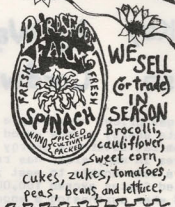 FARM
FRESH
FRESH
SPINACH
HAND PICKED
CULTIVATED
PACKED
WE
SELL
(or trade)
IN
SEASON
Brocolli,
cauliflower,
sweet corn,
cukes, zukes, tomatoes,
peas, beans, and lettuce.